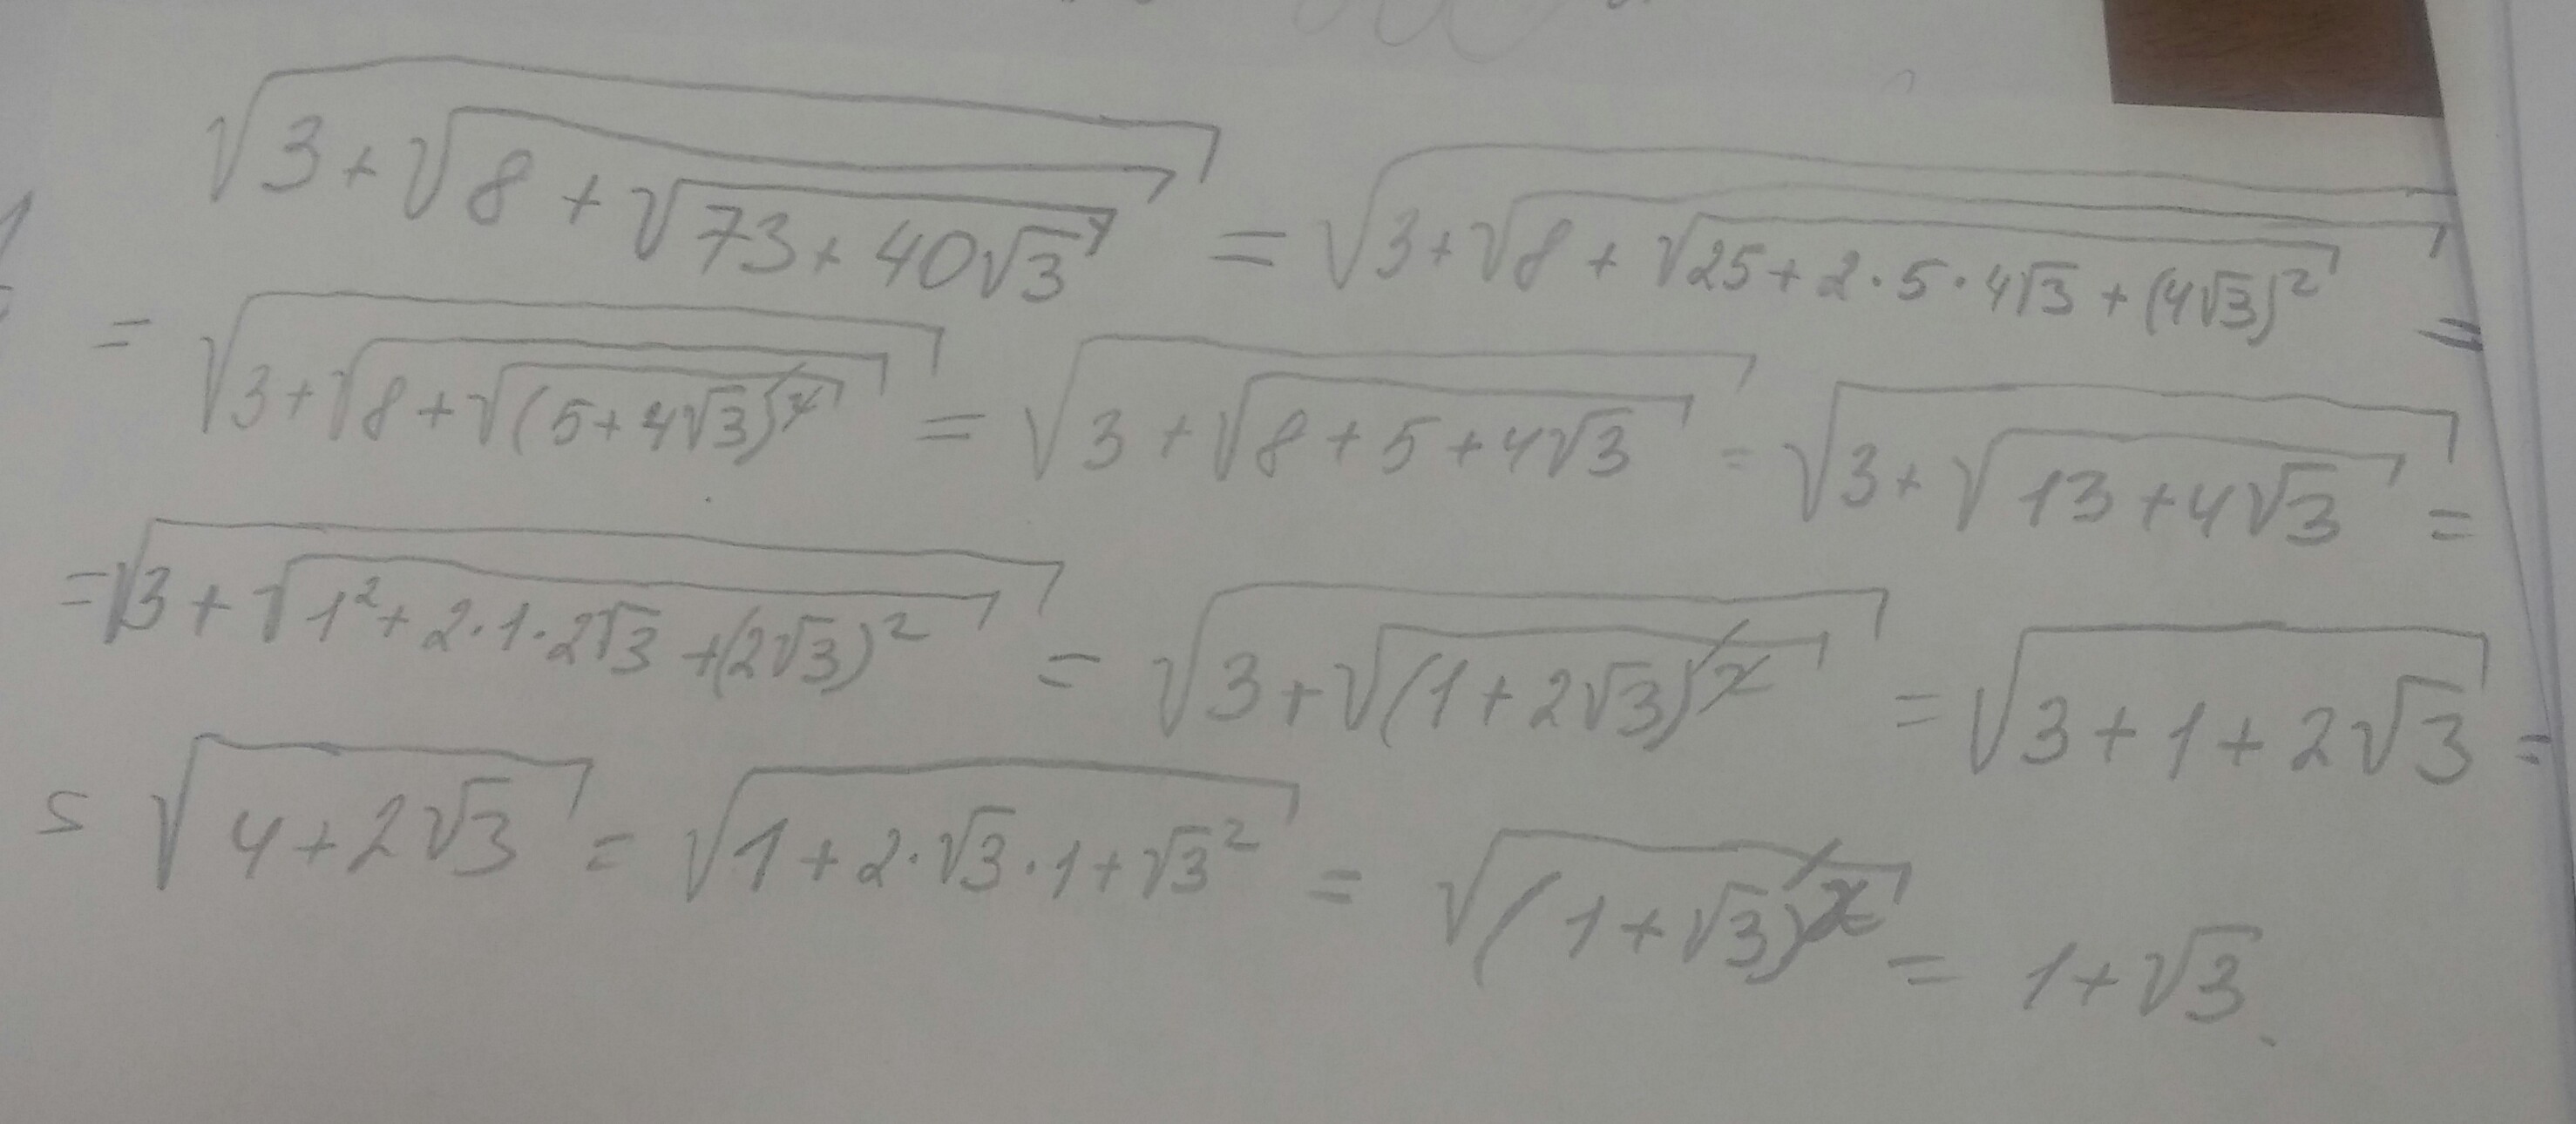 √(3+√(8+√(73+40√3))) = √(3+√(8+√(25+2·5·4√3+(4√3)²))) =
= √(3+√(8+√((5+4√3)²))) = √(3+√(8+5+4√3)) = √(3+√(13+4√3)) =
= √(3+√(1²+2·1·2√3+(2√3)²)) = √(3+√((1+2√3)²)) = √(3+1+2√3) =
= √(4+2√3) = √(1+2·√3·1+√3²) = √((1+√3)²) = 1+√3.